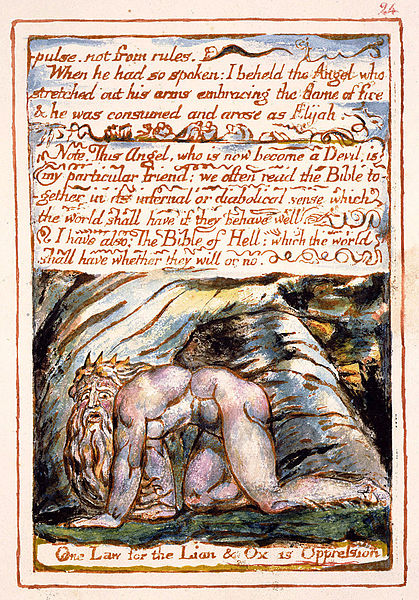 24
pulse. not from rules.
When he had so spoken: I beheld the Angel who
stretched out his arms embracing the flame of fire
& he was consumed and arose as Elijah
Note. This Angel, who is now become a Devil, is
my particular friend; we often read the Bible to-
gether in its infernal or diabolical sense which
the world shall have if they behave well
I have also; The Bible of Hell: which the world
shall have whether they will or no.
One Law for the Lion & Ox is Oppression